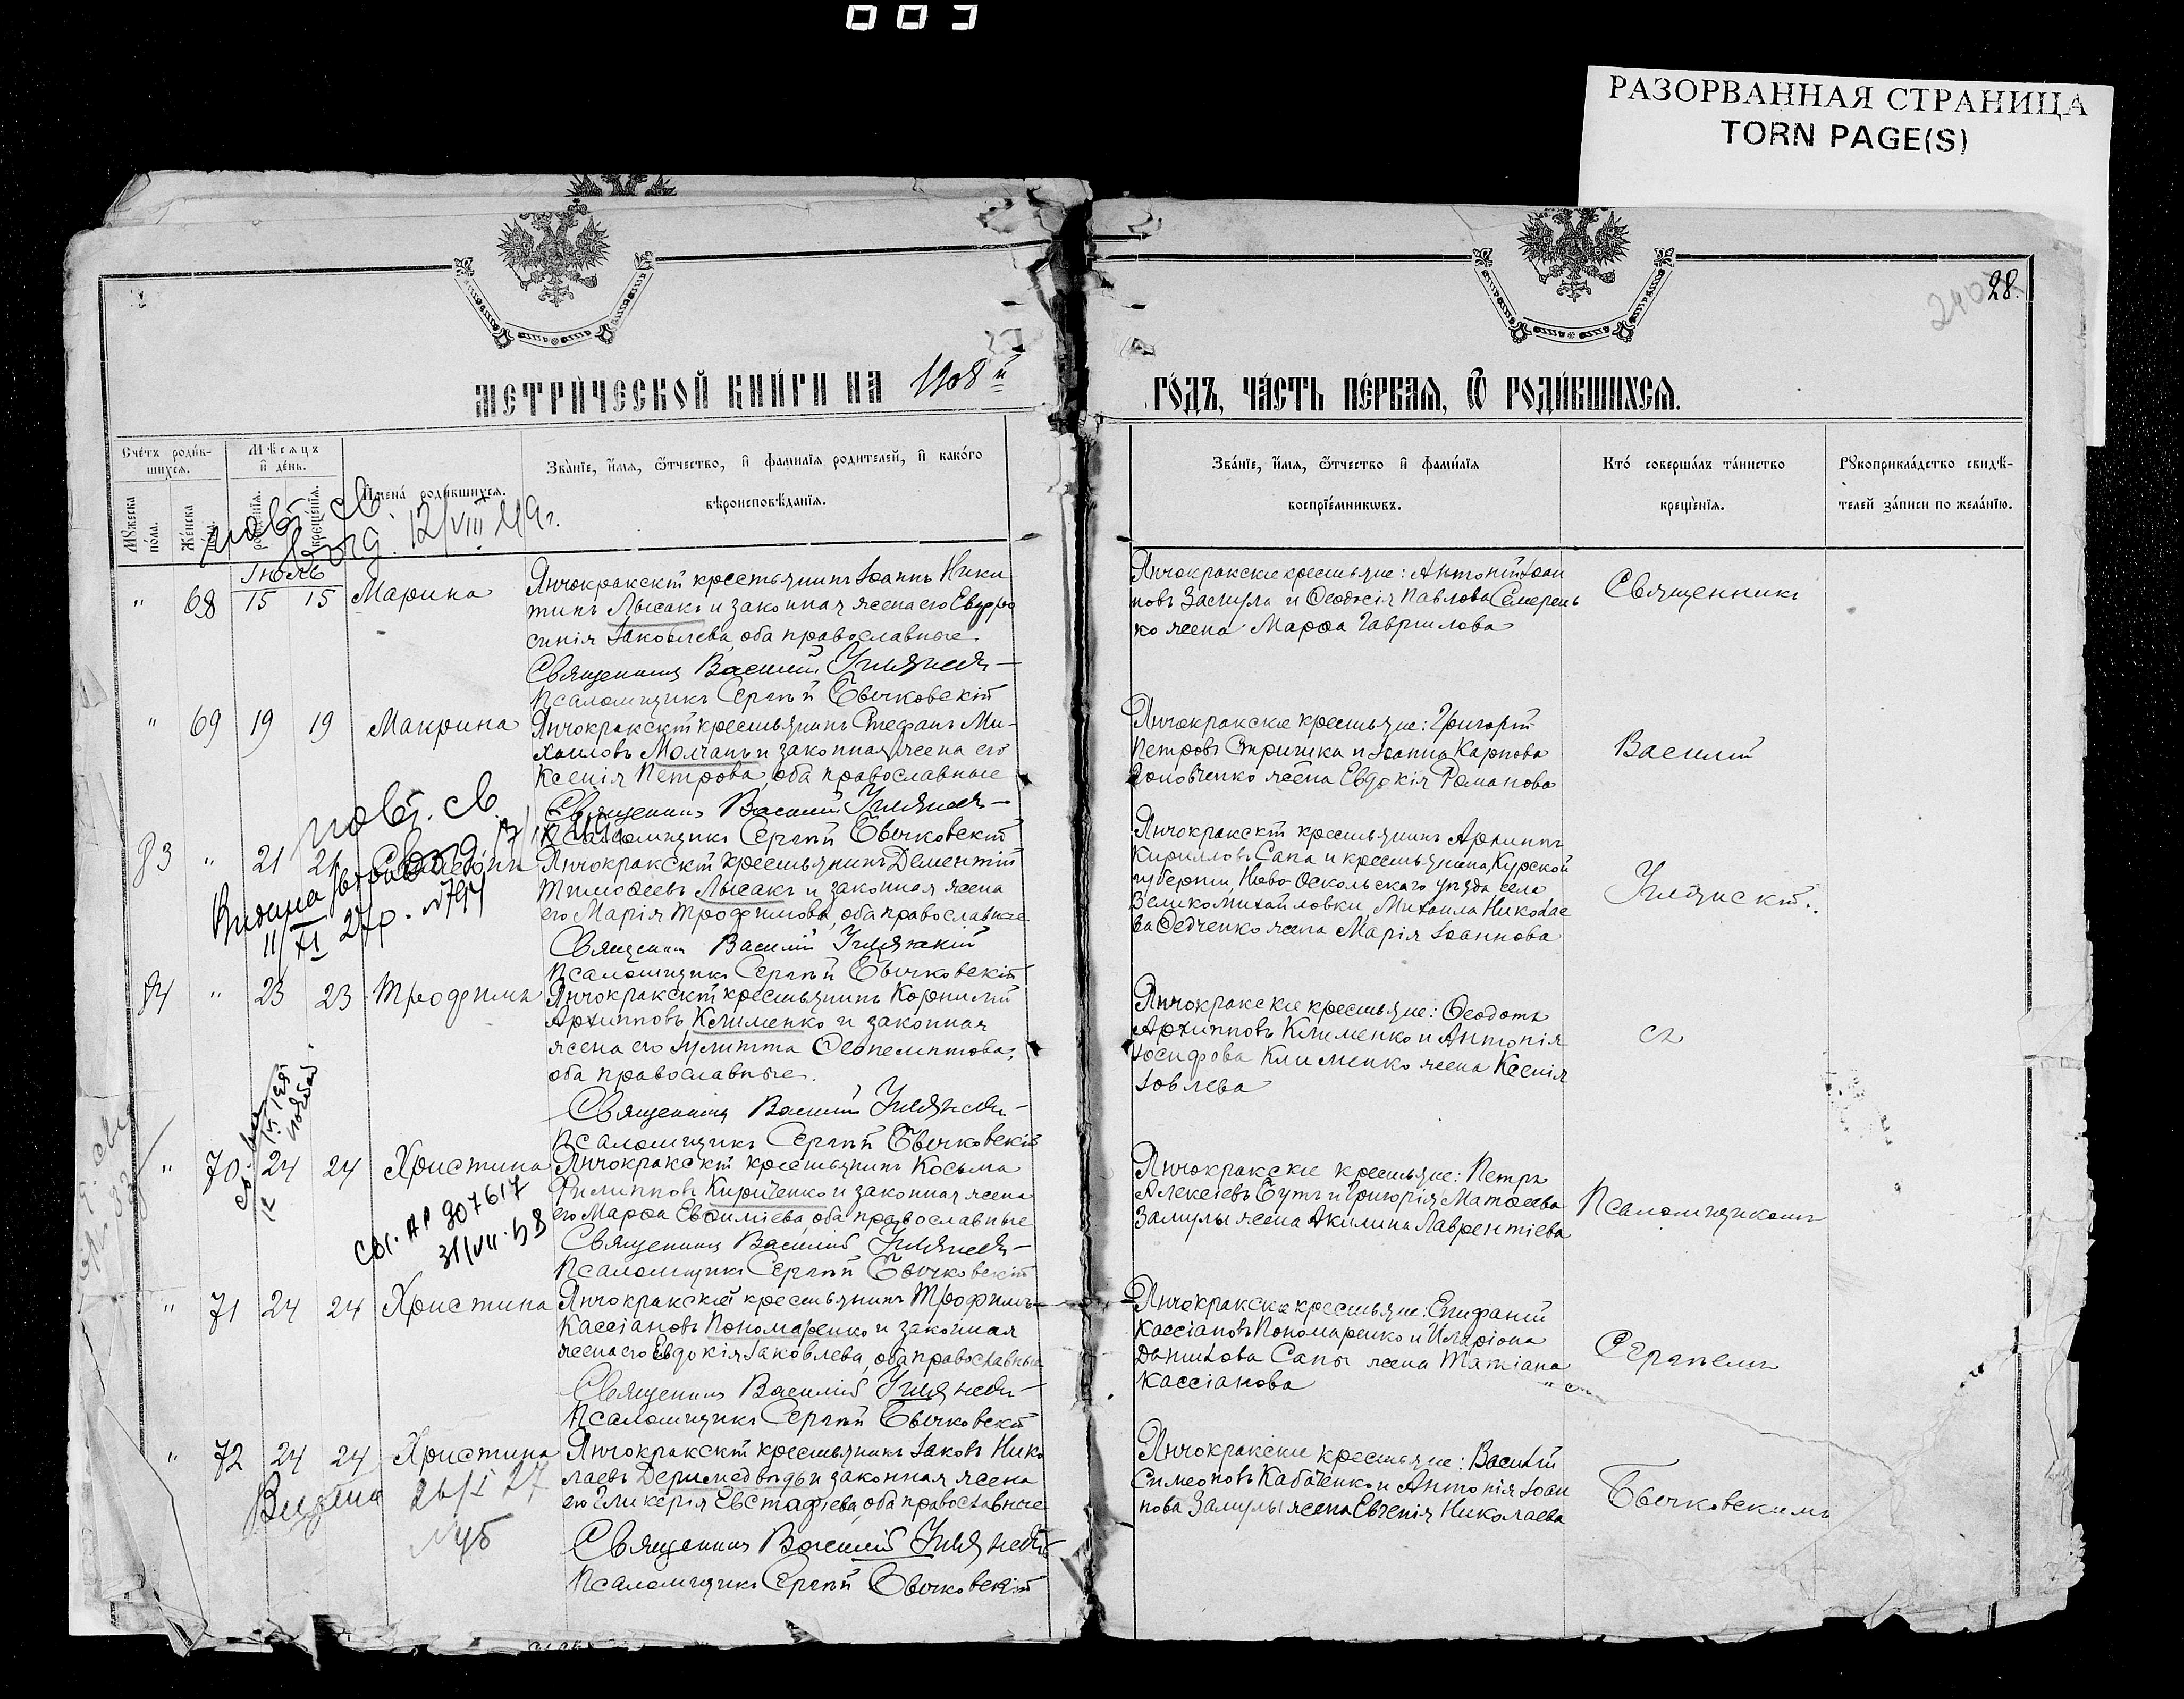 003
РАЗОРВАННАЯ СТРАНИЦА
TORN PAGE(S)
28.
МЕТРИ́ЧЕСКОЙ КНИ́ГИ НА 1908 й
ГО́ДЪ, ЧА́СТЬ ПЕ́РВАЯ, Ѿ РОДИ́ВШИХСЯ.
Сче́тъ роди́в-
шихся.
Му́жеска по́ла.
Же́нска по́ла.
Мѣ́сяцъ и҆ де́нь.
рожде́нїя.
креще́нїя.
И҆мена̀ роди́вшихся.
Зва́нїе, и҆́мя, ѻ҆́тчество, и҆ фами́лїя роди́телей, и҆ како́гѡ
вѣроисповѣ́данїя.
Зва́нїе, и҆́мя, ѻ҆́тчество и҆ фами́лїя
воспрїе́мникѡвъ.
Кто̀ соверша́лъ та́инство
креще́нїя.
Рꙋкоприкла́дство свидѣ́-
телей за́писи по жела́нїю.
повт. св.
12/VIII 49г.
Іюль
" 68 15 15 Марина
Янчокракскій крестьянинъ Іоаннъ Ники
тинъ Лысакъ и законная жена его Евфро
синія Іаковлева, оба православные.
Священникъ Василій
Псаломщикъ Сергѣй Бычковскій
Янчокракскіе крестьяне: Антоній Іоан
новъ Замула и Ѳеодосія Павлова Семерень
ко жена Марѳа Гавриилова
Священникъ
" 69 19 19 Макрина
Янчокракскій крестьянинъ Стефанъ Ми-
хаиловъ Молчанъ и законная жена его
Ксенія Петрова, оба православные
Священникъ Василій
Псаломщикъ Сергѣй Бычковскій
Янчокракскіе крестьяне: Григорій
Петровъ Стришка и Іоанна Карпова
жена Евдокія Романова
Василій
повт. св.
83 " 21 21
Янчокракскій крестьянинъ Дементій
Тимоѳеевъ Лысакъ и законная жена
его Марія Трофимова, оба православные
Священникъ Василій
Псаломщикъ Сергѣй Бычковскій
Янчокракскій крестьянинъ Архиппъ
Кирилловъ Сапа и крестьянина, Курской
губерніи, Ново-Оскольскаго уѣзда села
Великомихайловки, Михаила Николае
ва Федченко жена Марія Іоаннова
Выдана
11/XI 27р. №794
84 " 23 23 Трофимъ
Янчокракскій крестьянинъ Корнилій
Архипповъ Клименко и законная
жена его Іулитта Ѳеопемптова,
оба православные.
Священникъ Василій
Псаломщикъ Сергѣй Бычковскій
Янчокракскіе крестьяне: Ѳеодотъ
Архипповъ Клименко и Антонія
Іосифова Клименко жена Ксенія
Іовлева
съ
" 70 24 24 Христина
Янчокракскій крестьянинъ Косьма
Филипповъ Кириченко и законная жена
его Марѳа Евѳиміева, оба православные
Священникъ Василій
Псаломщикъ Сергѣй Бычковскій
Янчокракскіе крестьяне: Петръ
Алексіевъ Бутъ и Григорія Матѳеева
Замулы жена Акилина Лаврентіева
Псаломщикомъ
св. АР 307617
31/VII.58
" 71 24 24 Христина
Янчокракскій крестьянинъ Трофимъ
Кассіановъ Пономаренко и законная
жена его Евдокія Іаковлева, оба православные
Священникъ Василій
Псаломщикъ Сергѣй Бычковскій
Янчокракскіе крестьяне: Епифаній
Кассіановъ Пономаренко и Иларіона
Данилова Сапы жена Татіана
Кассіанова
Сергѣемъ
" 72 24 24 Христина
Янчокракскій крестьянинъ Іаковъ Нико
лаевъ Деримедвѣдь и законная жена
его Гликерія Евстафіева, оба православные
Священникъ Василій
Псаломщикъ Сергѣй Бычковскій
Янчокракскіе крестьяне: Василій
Симеоновъ Кабаченко и Антонія Іоан
нова Замулы жена Евгенія Николаева
Бычковскимъ
26/I 27
№45